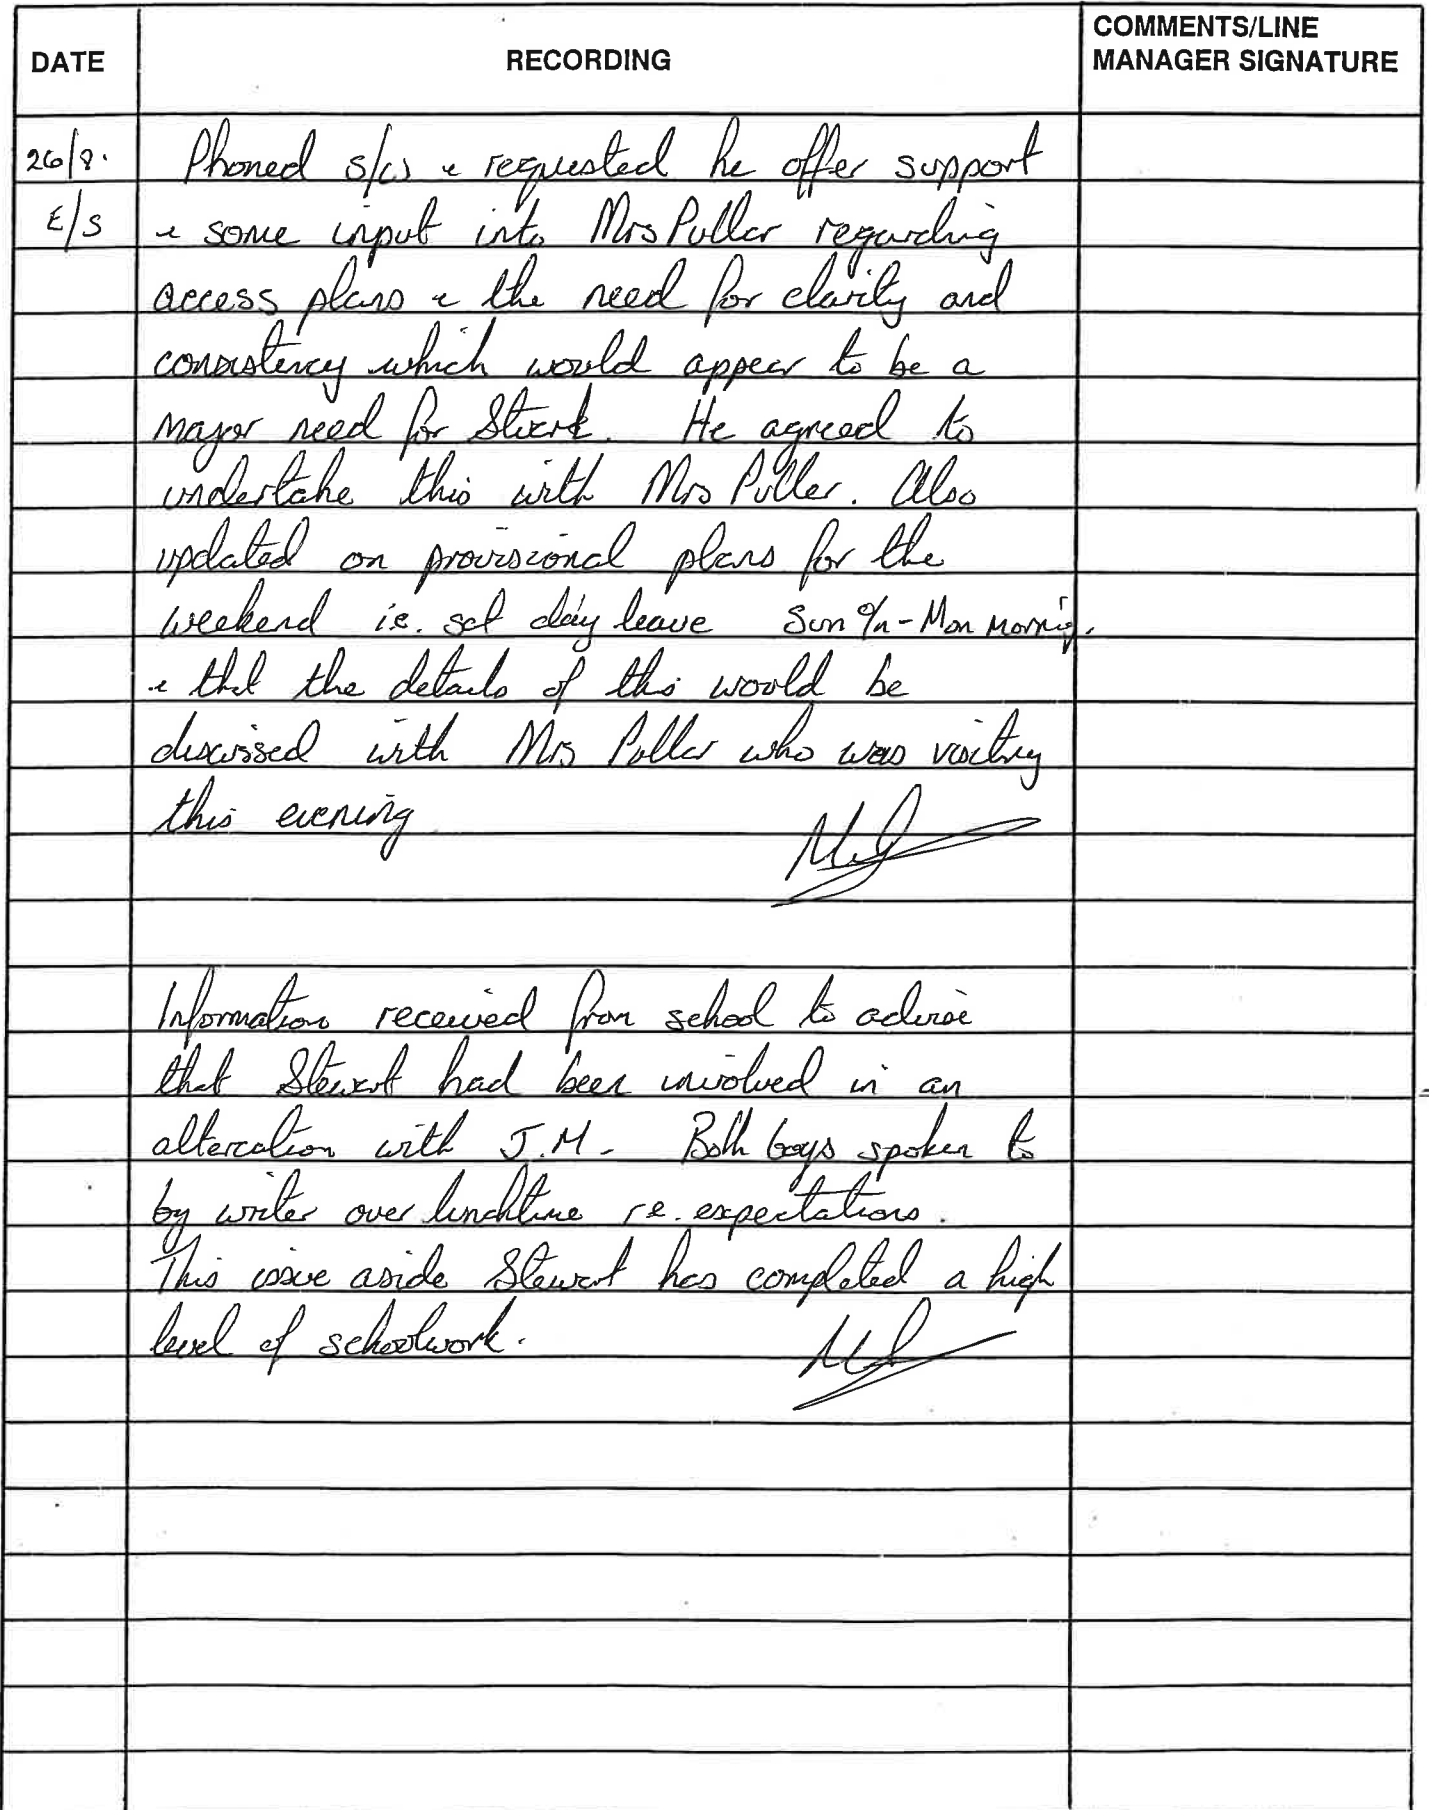 DATE RECORDING COMMENTS/LINE MANAGER SIGNATURE
26/8. Phoned s/w & requested he offer support
E/S & some input into Mrs Puller regarding
access plans & the need for clarity and
consistency which would appear to be a
major need for Stewart. He agreed to
undertake this with Mrs Puller. Also
updated on provisional plans for the
weekend ie. sat day leave Sun o/n - Mon morning.
& that the details of this would be
discussed with Mrs Puller who was visiting
this evening
Information received from school to advise
that Stewart had been involved in an
altercation with J.M. Both boys spoken to
by writer over lunchtime re. expectations.
This issue aside Stewart has completed a high
level of schoolwork.